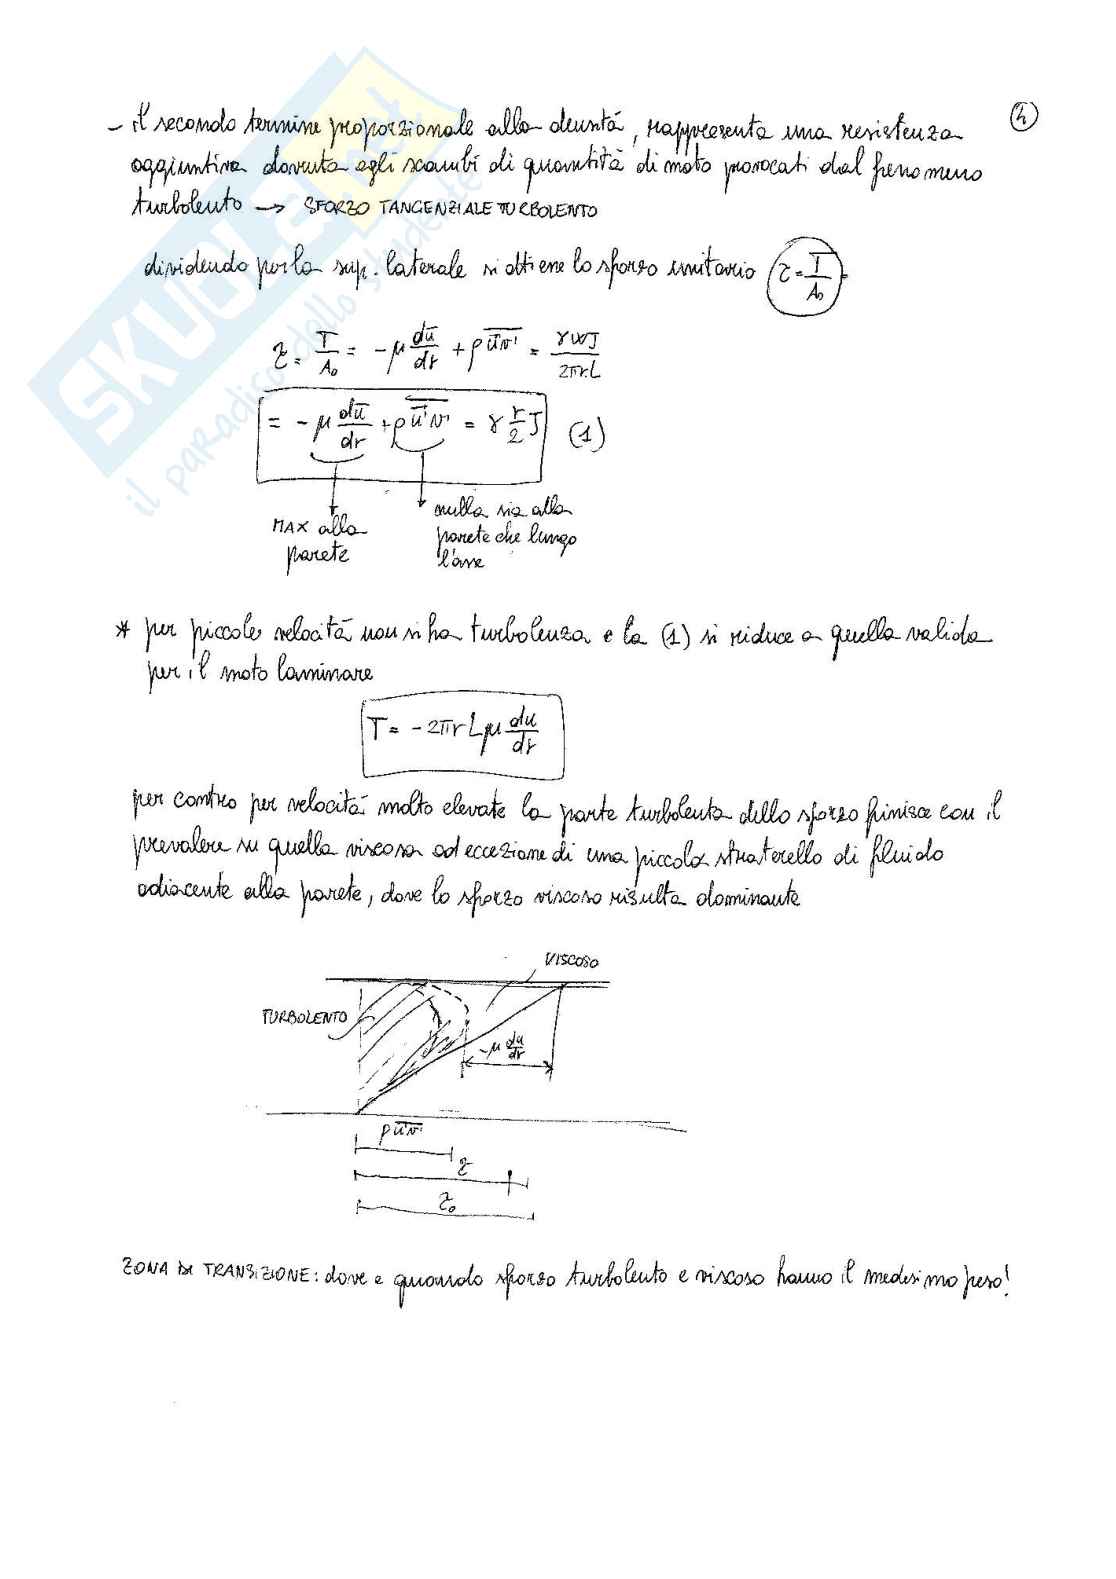 4
- il secondo termine proporzionale alla densità, rappresenta una resistenza
aggiuntiva dovuta agli scambi di quantità di moto provocati dal fenomeno
turbolento → SFORZO TANGENZIALE TURBOLENTO
dividendo per la sup. laterale si ottiene lo sforzo unitario τ = T/A₀
τ = T/A₀ = -μ dū/dr + ρ u'v' = γWJ/2πrL
= -μ dū/dr + ρ u'v' = γ r/2 J (1)
MAX alla
parete
nulla sia alla
parete che lungo
l'asse
* per piccole velocità non si ha turbolenza e la (1) si riduce a quella valida
per il moto laminare
T = -2πrLμ du/dr
per contro per velocità molto elevate la parte turbolenta dello sforzo finisce con il
prevalere su quella viscosa ad eccezione di una piccola straterello di fluido
adiacente alla parete, dove lo sforzo viscoso risulta dominante
VISCOSO
TURBOLENTO
-μ du/dr
ρ u'v'
τ
τ₀
ZONA DI TRANSIZIONE: dove e quando sforzo turbolento e viscoso hanno il medesimo peso!
SKUOLA.net
il paradiso dello studente